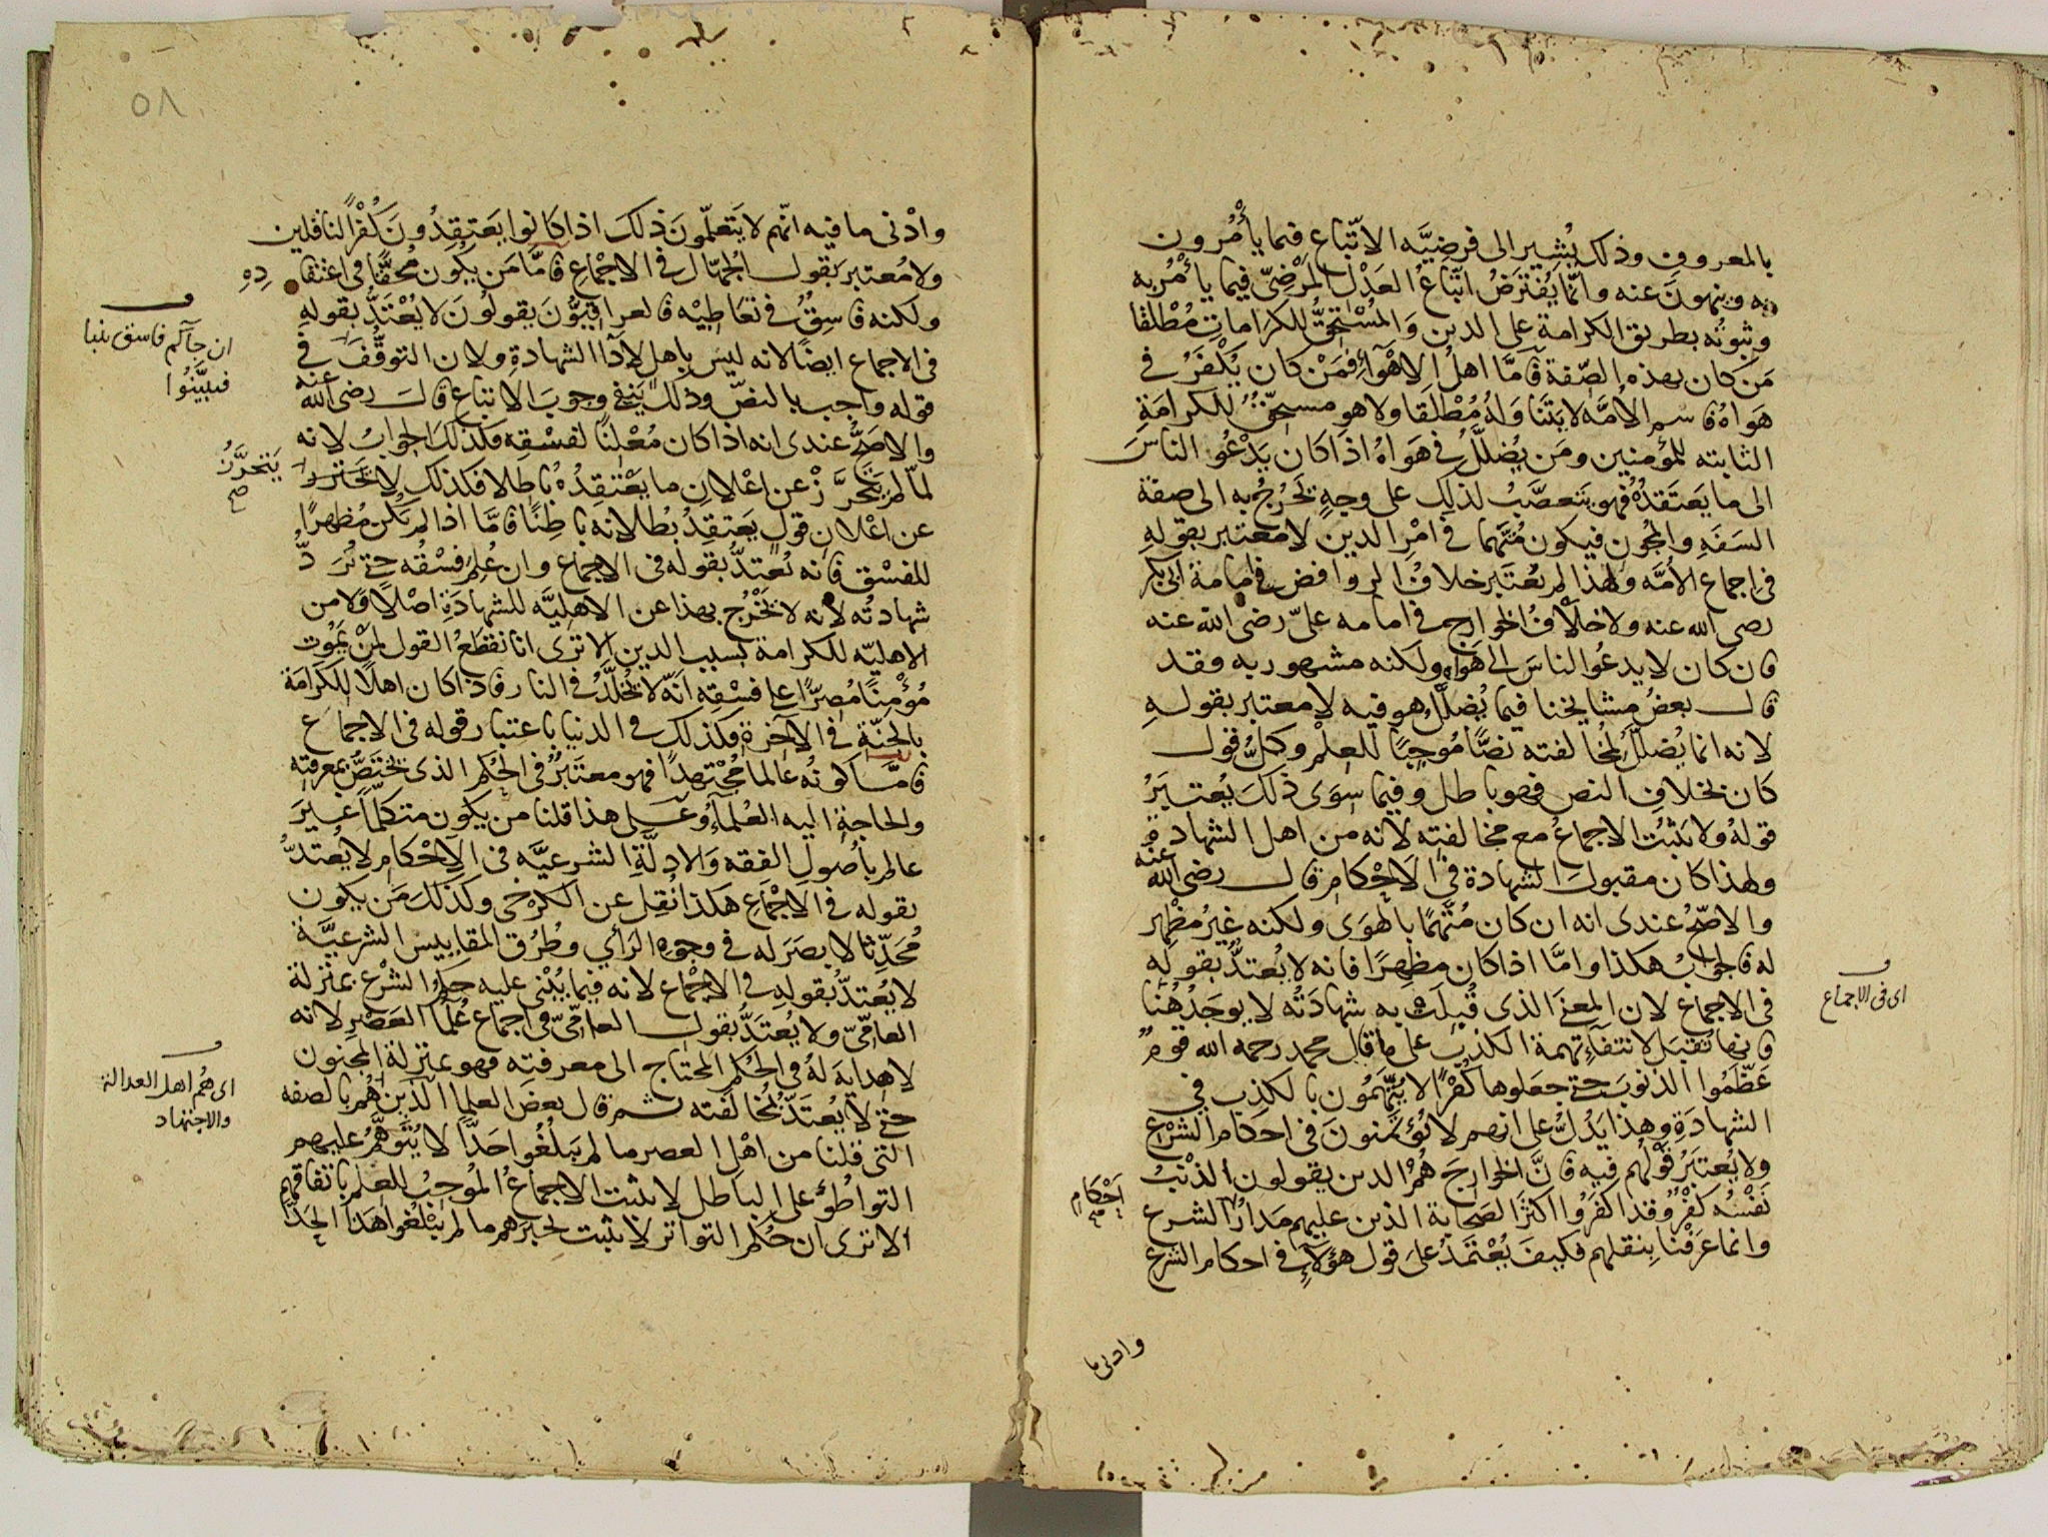 بالمعروف وذلك يُشير الى فرضيَّه الاتّباع فيما يأمُرون
به وينهونَ عنه وانّما يُفتَرَضُ اتّباعُ العَدْلِ المَرْضِىّ فيما يأمُرُ به
وثبوتُه بطريق الكرامة على الدين وَالمُسْتحِقُّ للكرَاماتِ مُطْلقا
مَن كان بهذه الصّفة فَامَّا اهلُ الاهْوَآءِ فَمَنْ كان يُكْفَرُ في
هَوَاهُ فاسم الأمَّه لا يَتَنَاوَلُهُ مُطْلَقا ولا هو مستحِقٌّ للكرامَةِ
الثابته للمؤمنين ومَن يُضلَّلُ في هَوَاهُ اذا كَان يَدْعُو الناسَ
الى ما يَعتَقِدُهُ فهو يَتَعصَّبُ لذلك على وجهٍ يَخرُجُ به الى صفة
السَفَهِ والمُجُونِ فيكون مُتَّهَما في امْرِ الدين لا معتبر بقولِهِ
فى اجماع الأمَّه ولهذا لم يُعتَبَر خلافُ الروافض في امامة ابى بكر
رضى الله عنه ولا خلَافُ الخوارج في امامه علىّ رضى الله عنه
فان كان لا يدعُوا الناسَ الى هَوَاه ولكنه مشهور به فقد
قال بعضُ مشايخنا فيما يُضلَّلُ هو فيه لا معتبر بقولهِ
لانه انما يُضلَّلُ لمخالفته نصًّا مُوجِبًا للعِلْم وكلُّ قول
كان بخلافِ النص فهو باطل وفيما سِوَى ذلكَ يُعتبَرُ
قولهُ ولا يَثبُت الاجماعُ مع مخالفته لانه من اهل الشهادة
ولهذا كان مقبولَ الشهادة فى الَاحْكام قال رضى الله عنه
والاصّحُ عندى انه ان كان مُتَّهمًا بالهوَى ولكنه غيرُ مظهِر
له فالجوابُ هكذا وامَّا اذا كان مظهِرًا فانه لا يُعتدُّ بقولهِ
فى الاجماع لان المعنَى الذى قُبِلَت به شهادَتُه لا يوجَدُ هُنَا
فانها تُقبَل لانتفآءِ تهمة الكذب على ما قال محمد رحمه الله قومٌ
عَظّمُوا الذنوبَ حتى جعلوها كُفْرًا لا يُتَّهَمُون بالكذب في
الشهادَةِ وهذا يَدُلُّ على انهم لا يُؤتَمنونَ فى احكام الشَرْع
ولا يُعتبَرُ قولُهم فيه فانَّ الخوارِجَ هُمُ الذين يقولون الذنْبُ
نَفْسُه كُفْرٌ وقد اكفَرُوا اكثَر الصحابة الذين عليهم مَدَارُ الشرع
وانما عَرَفْنا بِنقلهم فكيفَ يُعْتَمَدُ عَلَى قول هؤلآءِ في احكام الشرع
اى فى الاجماع
احْكامِ
وادنى ما
٥٨
وادْنى ما فيه انّهم لا يَتعلّمونَ ذلك اذا كانوا يَعتِقدُونَ كُفْرَ الناقلين
ولا مُعتبر بقول الجُهّال في الاجْماع فامَّا مَن يكُون مُحقًّا فى اعتقادِهِ
ولكنه فاسِقٌ في تعَاطِيْه فالعراقِيُّونَ يقولُونَ لا يُعْتَدُّ بقولهِ
فى الاجماع ايضًا لانه ليسَ باهلٍ لأدآ الشهادةِ ولان التوقُّفَ في
قوله واجب بالنصّ وذلك يَنفِي وجوبَ الاتباع قال رضى الله عنه
والاصَحُّ عندى انه اذا كان مُعْلِنًا لفسْقِهِ فكذلك الجوابُ لانه
لمّا لم يتحَرَّزْ عن إعْلانِ ما يعْتقِدُهُ باطلا فكذلك لا يَتحَرَّزُ
عن اعْلانِ قولٍ يَعتقِدُ بُطلانَه باطِنًا فامَّا اذا لم يكُن مُظهِرًا
للفسْق فانه يُعتدُّ بقوله فى الاجماع وان عُلِمَ فسْقُه حتى تُرَدّ
شهادتُه لأنه لا يَخْرُج بهذا عن الاهليَّه للشهادَةِ اصْلًا ولا من
الاهليّه للكرامة بسبب الدين الا ترى انا نقطَعُ القول لمَنْ يَمُوت
مُؤْمنًا مُصِرًّا على فسْقِهِ انّه لا يُخلَّدُ في النار فاذا كان اهلًا للكَرَامَة
بالجَنّةِ في الآخرة فكذلك في الدنيا باعتبار قوله فى الاجماع
فامَّا كونُه عالما مُجْتهِدًا فهو معتبَرٌ فى الحُكم الذى يختَصُّ بمعرفته
والحاجةِ اليه العُلماءُ وعَلى هذا قلنا من يكون متكلّمًا غيرَ
عالم بأُصولِ الفقه وَالادلّةِ الشرعيَّه فى الَاحْكامِ لا يُعتدُّ
بقوله في الاجْماعِ هكذا نُقِل عن الكرْخى وكذلكَ مَن يكون
مُحَدِّثا لا بصَرَ له في وجوه الرَأي وطُرُق المقاييس الشرعيَّة
لا يُعتدُّ بقولهِ في الاجْماع لانه فيما يُبْنى عليه حكم الشرْع بمنزلة
العامّىّ ولا يُعتَدّ بقول العامِّىّ فى اجماع عُلمآ العَصْرِ لانه
لا هدايةَ لهُ في الحُكمِ المحتاج الى معرفته فهو بمنزلة المجنون
حتى لا يُعتَدّ بمُخالَفته ثم قال بعضُ العلما الذين هُم بالصفه
التى قلنا من اهْلِ العصر ما لم يَبلُغُوا حَدًّا لا يُتَوهَّمُ عليهم
التواطُؤُ على الباطل لا يثبت الاجماعُ المُوجِبُ للعلم باتفاقهم
الا ترى أنَ حُكم التواتر لا يثبت لخبرهم ما لم يَبْلُغوا هَذا الحَدَّ
ان جآكم فاسق بنبا
فتبيَّنُوا
يَتحَرَّزُ
صح
اى هُم اهل العدالة
والاجتهاد